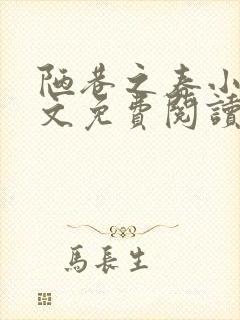 陋巷之春小
文免費閱讀
馬長生